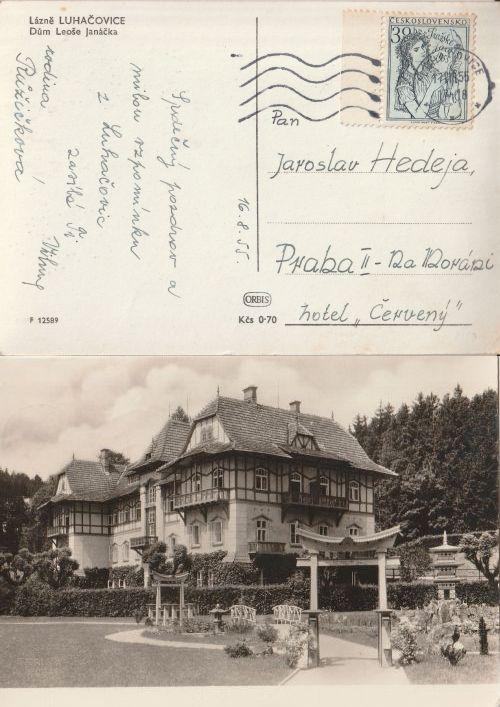 Lázně LUHAČOVICE
Dům Leoše Janáčka
Srdečný pozdrav a
milou vzpomínku
z Luhačovic
zasílá
rodina
Růžičková
16.8.55.
ČESKOSLOVENSKO
30
Pan
Jaroslav Hedeja,
Praha II - Na Poříčí
hotel „Červený"
ORBIS
F 12589
Kčs 0·70